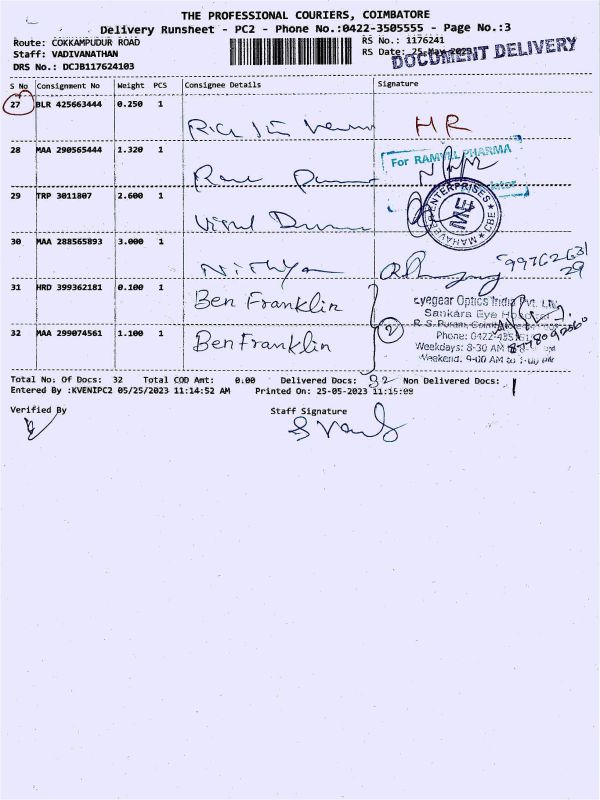 THE PROFESSIONAL COURIERS, COIMBATORE
Delivery Runsheet - PC2 - Phone No.:0422-3505555 - Page No.:3
Route: COKKAMPUDUR ROAD
RS No.: 1176241
Staff: VADIVANATHAN
RS Date: 25-May-2023
DOCUMENT DELIVERY
DRS No.: DCJB117624103
S No Consignment No Weight PCS Consignee Details Signature
27 BLR 425663444 0.250 1
HR
28 MAA 290565444 1.320 1
For RAMVEL PHARMA
29 TRP 3011807 2.600 1
MAHAVEER ENTERPRISES CBE
30 MAA 288565893 3.000 1
Nithya
31 HRD 399362181 0.100 1
Ben Franklin
Eyegear Optics India Pvt. Ltd
Sankara Eye Hospital
32 MAA 299074561 1.100 1
Ben Franklin
2
R.S.Puram,
Phone:
Weekdays: 8-30 AM
Weekend. 9-00 AM to
Total No: Of Docs: 32 Total COD Amt: 0.00 Delivered Docs: 32 Non Delivered Docs:
Entered By :KVENIPC2 05/25/2023 11:14:52 AM Printed On: 25-05-2023 11:15:08
Verified By
Staff Signature